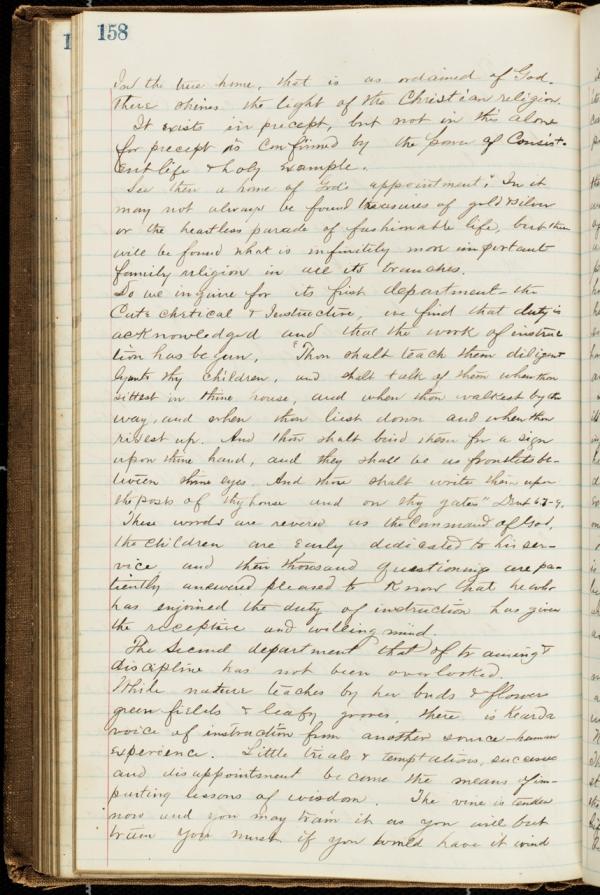 158
In the true home, that is as ordained of God.
There shines the light of the Christian religion.
It exists in precept, but not in this alone
for precept is confirmed by the power of Consist-
ent life & holy example.
See then a home of God's appointment; In it
may not always be found treasures of gold & silver
or the heartless parade of fashionable life, but there
will be found what is infinitely more important
family religion in all its branches.
Do we inquire for its first department - the
Catechetical & Instructive, we find that duty is
acknowledged and that the work of instruc
tion has begun, "Thou shalt teach them diligent
ly unto thy children, and shalt talk of them when thou
sittest in thine house, and when thou walkest by the
way, and when thou liest down and when thou
risest up. And thou shalt bind them for a sign
upon thine hand, and they shall be as frontlets be-
tween thine eyes. And thou shalt write them upon
the posts of thy house and on thy gates" Deut 6 7-9.
These words are revered as the Command of God,
the children are early dedicated to his ser-
vice and their thousand questionings are pa-
tiently answered pleased to know that he who
has enjoined the duty of instruction has given
the receptive and willing mind.
The second department that of training &
discipline has not been overlooked.
While nature teaches by her buds & flowers
green fields & leafy groves, there is heard a
voice of instruction from another source - human
experience. Little trials & temptations, successes
and disappointment become the means of im-
parting lessons of wisdom. The vine is tender
now and you may train it as you will but
train you must if you would have it wind